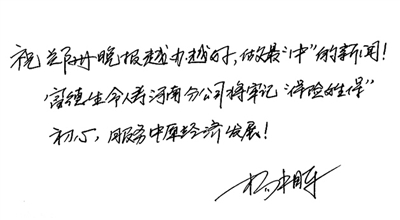 祝郑州晚报越办越好,做最"中"的新闻!
富德生命人寿河南分公司将牢记"保险姓保"
初心,服务中原经济发展!